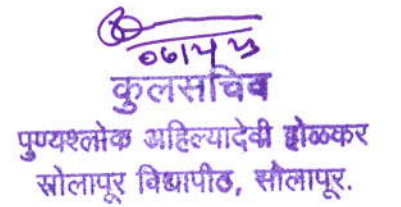 कुलसचिव
पुण्यश्लोक अहिल्यादेवी होळकर
सोलापूर विद्यापीठ, सोलापूर.